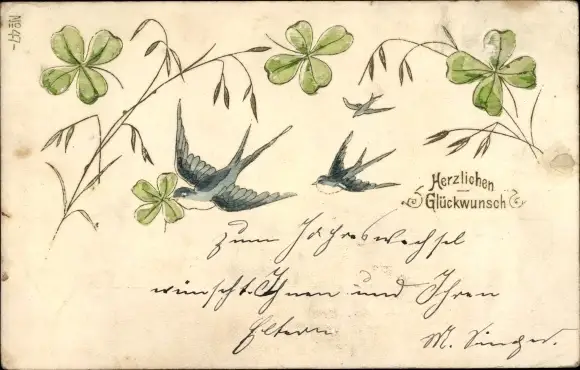 No 47-
Herzlichen
Glückwunsch
Zum Jahreswechsel
wünscht Ihnen und Ihren
Eltern
M. Singer.